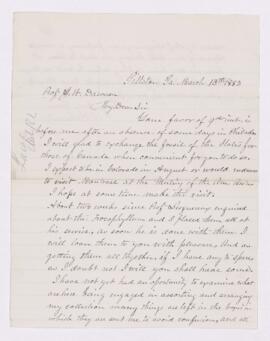 Pittston Pa. March 13th 1883
Prof J. W. Dawson
My Dear Sir
Your favor of 9th inst. is
before me after an absence of some days in Philada
I will glad to exchange the fossils of the States for
those of Canada when convenient for you to do so.
I expect to be in Colorado in August or would endeavor
to visit Montreal at the Meeting of the Am. Assn.
I hope at some time make the visit.
About two weeks since Prof Lesquereux inquired
about the and I placed them all at
his service, as soon as he is done with them I
will loan them to you with pleasure. And on
getting them all together, if I have any to spare
as I doubt not I will you shall have some.
I have not yet had an opportunity to examine what
are here being engaged in assorting and arranging
my collection many things are left in the boxes in
which they are sent me to avoid confusion, and all
Lacoe